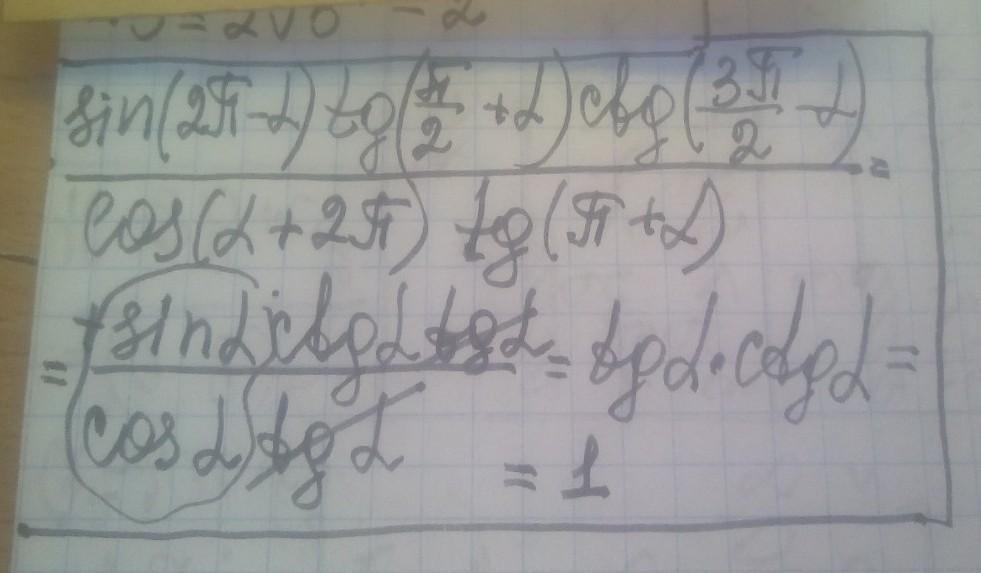 sin(2π-α) tg(π/2 +α) ctg(3π/2 -α)
=
cos(α+2π) tg(π+α)
= -sinα·ctgα tgα / cosα tgα = tgα·ctgα =
= 1